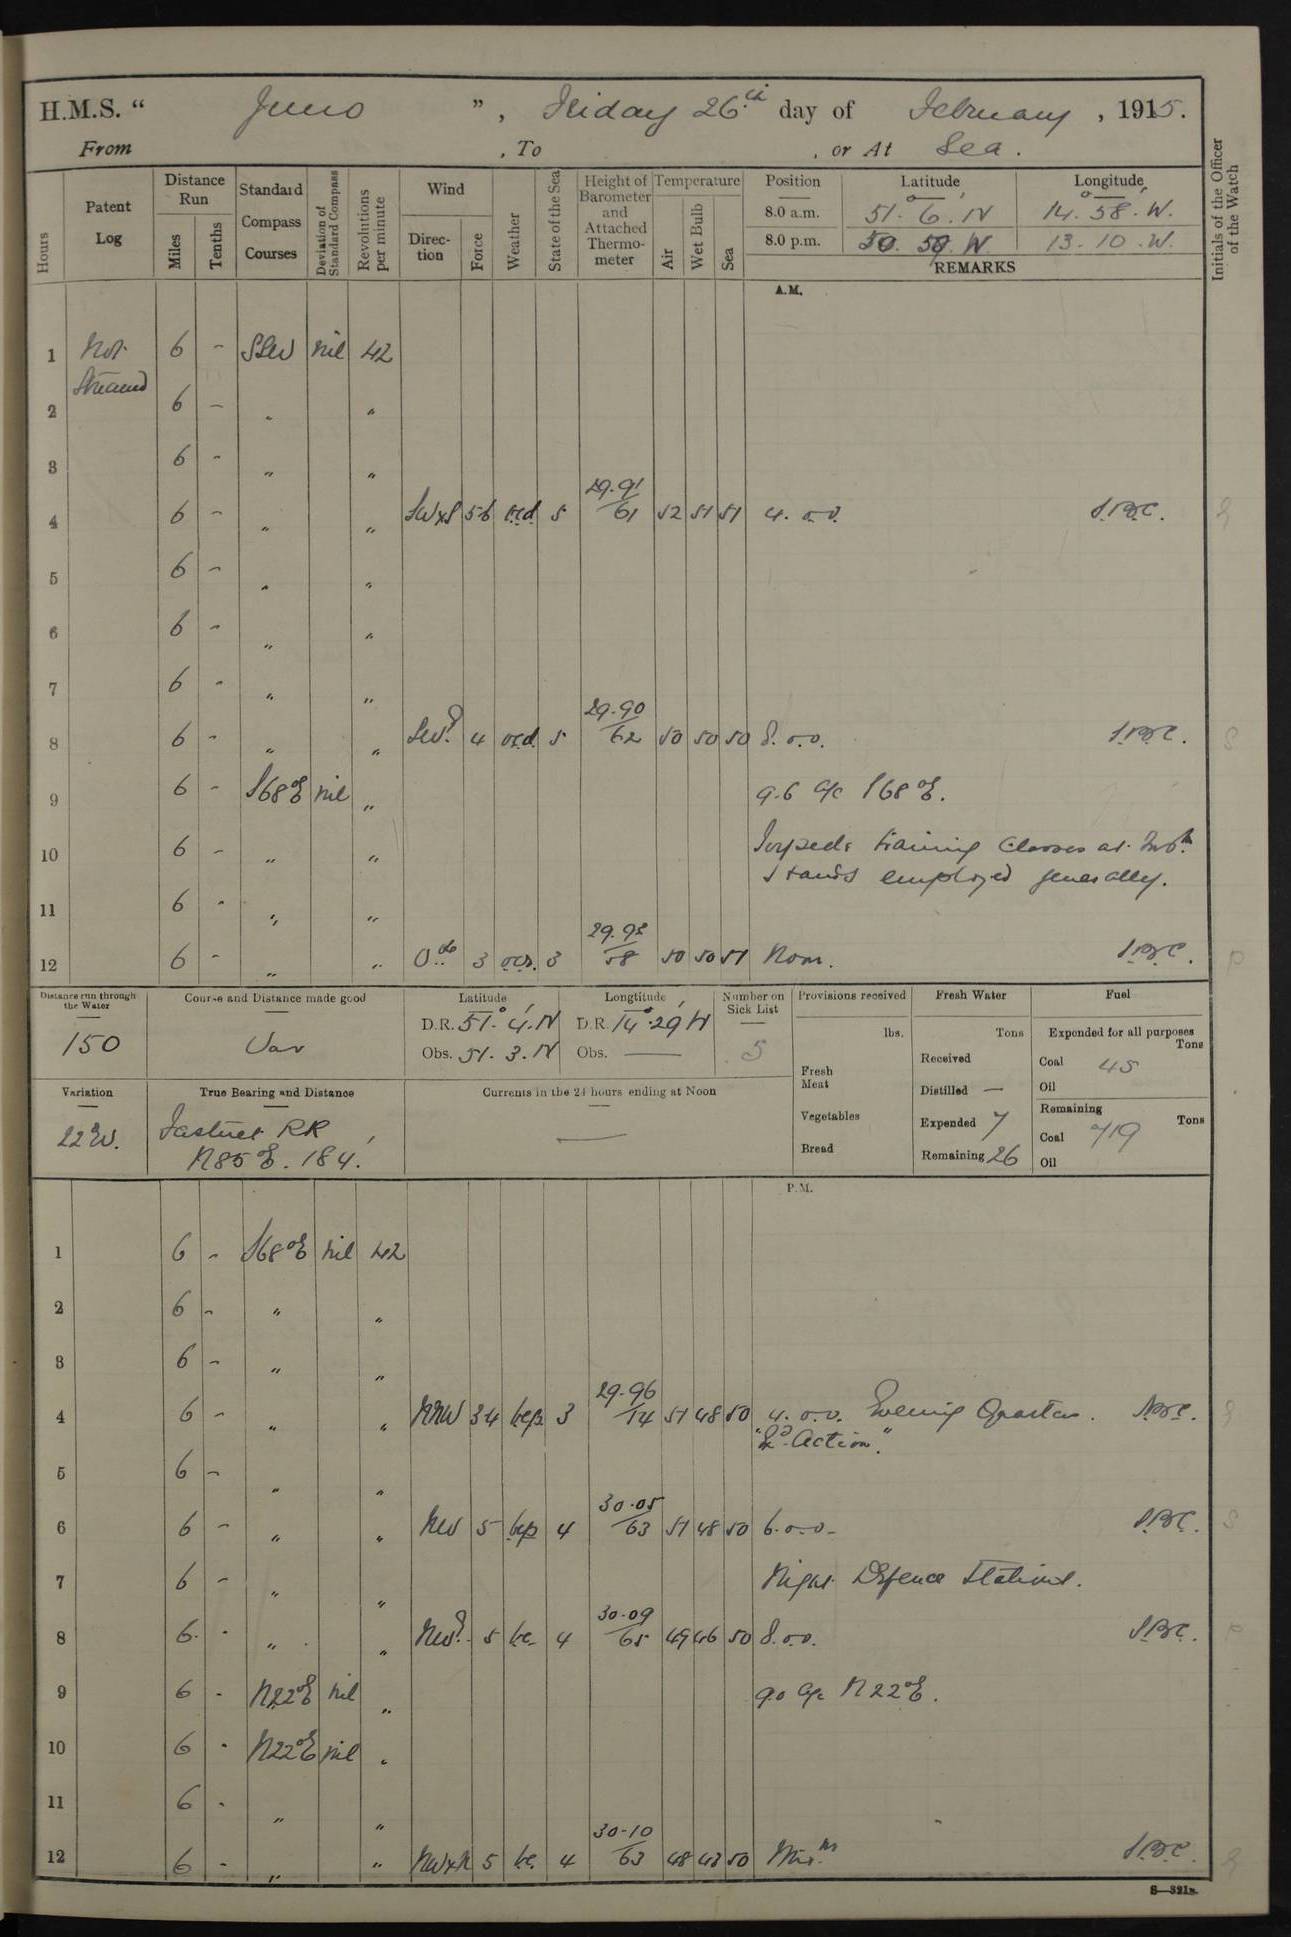 H.M.S. " Juno ", Friday 26th day of February, 1915.
From , To , or At Sea.
Hours
Patent Log
Distance Run
Miles
Tenths
Standard Compass Courses
Deviation of Standard Compass
Revolutions per minute
Wind
Direction
Force
Weather
State of the Sea
Height of Barometer and Attached Thermometer
Temperature
Air
Wet Bulb
Sea
Position Latitude Longitude
8.0 a.m. 51. 6. N 14. 58. W.
8.0 p.m. 50. 59. W 13. 10. W.
REMARKS
Initials of the Officer of the Watch
A.M.
1 Not 6 - SSW nil 42
Streamed
2 6 - " "
3 6 - " "
4 6 - " " SWxS 5-6 ocd 5 29.91/61 52 51 51 4.0.0.
5 6 - " "
6 6 - " "
7 6 - " "
8 6 - " " 4 ocd. 5 29.90/62 50 50 50 8.0.0.
9 6 - S68°E nil " 9.6 a/c S68°E.
10 6 - " " Torpedo training classes at
Hands employed generally.
11 6 - " "
12 6 - " " 3 3 /58 50 50 51 Noon.
Distance run through the Water
150
Course and Distance made good
Var
Latitude
D.R. 51. 4. N
Obs. 51. 3. N
Longtitude
D.R. 14. 29 W
Obs. ——
Number on Sick List
5
Provisions received
lbs.
Fresh Meat
Vegetables
Bread
Fresh Water
Tons
Received
Distilled —
Expended 7
Remaining 26
Fuel
Expended for all purposes
Tons
Coal 45
Oil
Remaining
Tons
Coal 719
Oil
Variation
22°W.
True Bearing and Distance
Fastnet RR
N85°E. 184.
Currents in the 24 hours ending at Noon
——
P.M.
1 6 - S68°E nil 42
2 6 - " "
3 6 - " "
4 6 - " " NNW 3-4 bcp 3 29.96/ 51 48 50 4.0.0. Evening Quarters.
Action."
5 6 - " "
6 6 - " " NW 5 bcp 4 30.05/63 51 48 50 6.0.0.
7 6 - " " Night Defence Stations.
8 6 - " " 5 bc 4 30.09/65 49 46 50 8.0.0.
9 6 - N22°E nil " 9.0 a/c N22°E.
10 6 - N22°E nil "
11 6 - " "
12 6 - " " NWxN 5 bc. 4 30.10/63 48 43 50
S—321a.